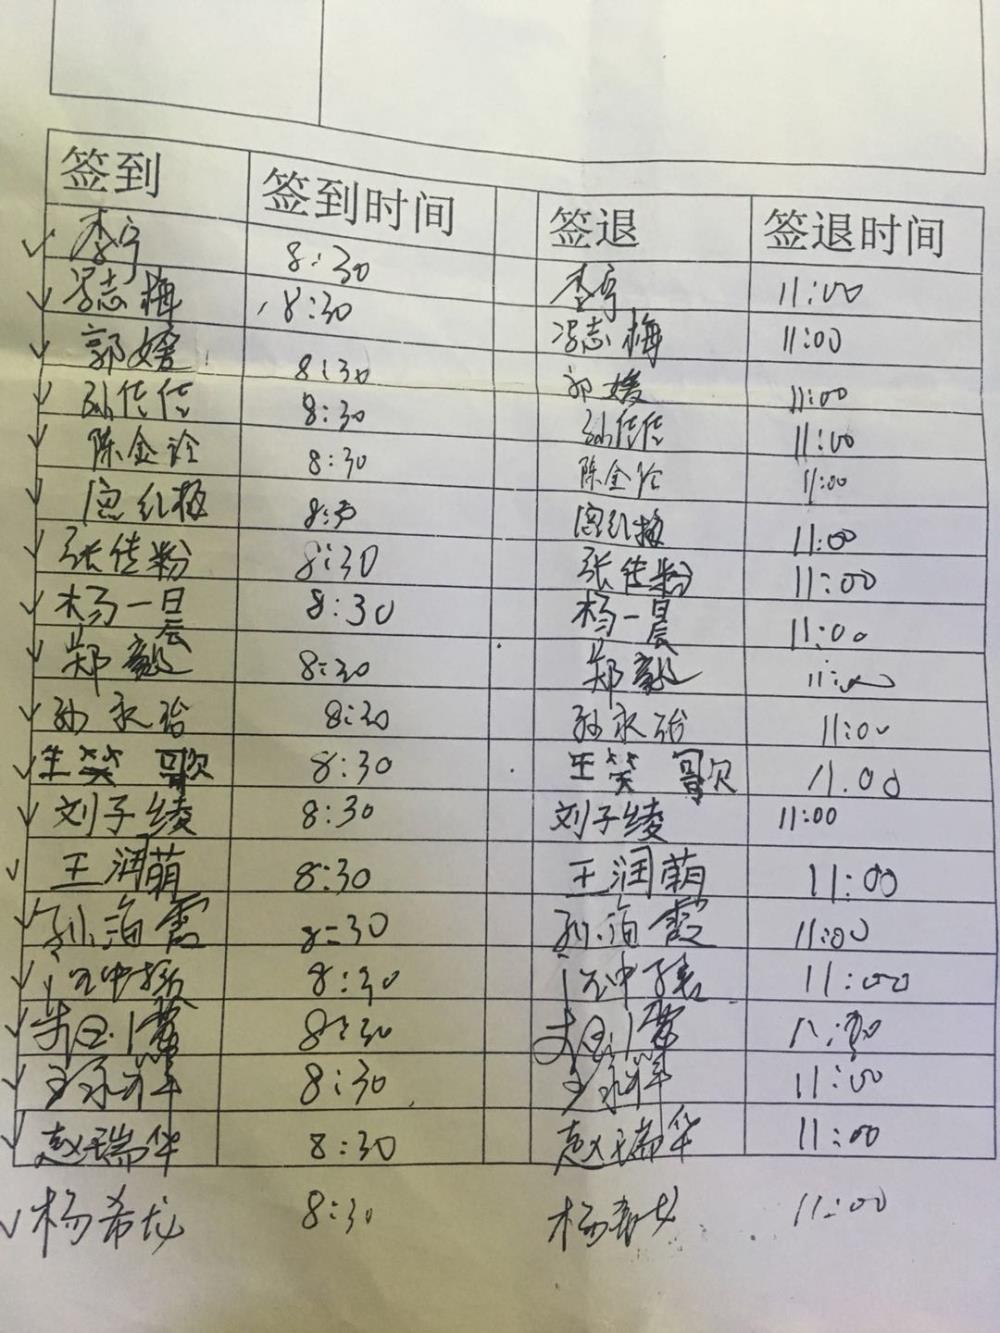 签到 签到时间 签退 签退时间
李宁 8:30 李宁 11:00
冯志梅 8:30 冯志梅 11:00
郭媛 8:30 郭媛 11:00
孙传传 8:30 孙传传 11:00
陈金 8:30 陈金 11:00
红梅 8:30 红梅 11:00
张佳粉 8:30 张佳粉 11:00
杨一晨 8:30 杨一晨 11:00
郑毅 8:30 郑毅 11:00
孙永 8:30 孙永 11:00
生笑歌 8:30 生笑歌 11.00
刘子绫 8:30 刘子绫 11:00
王润萌 8:30 王润萌 11:00
孙海霞 8:30 孙海霞 11:00
8:30 11:00
8:30 11:00
王永祥 8:30 王永祥 11:00
赵瑞华 8:30 赵瑞华 11:00
杨希龙 8:30 杨希龙 11:00